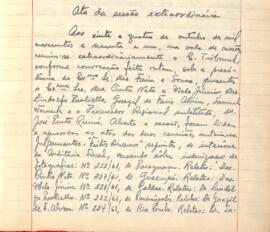 Ata da sessão extraordinária
Aos vinte e quatro de outubro de mil
novecentos e sessenta e um, na sala de
reuniu-se extraordinariamente o E. Tribunal,
conforme convocação feita, sob a presi-
dência do Exmo Sr. Des. Faria e Sousa, presentes
o Exmos Srs. Des. Autos Mata e Melo Júnior, drs
Lindolfo Paoliello, Gorazil de Faria Alvim, Samuel
e o Procurador Regional substituto, dr
José Pinto. Aberta a sessão, foram lidas
e aprovadas as atas das duas reuniões anteriores.
Julgamentos: Feitos Diversos: de interesse
da Auditoria Fiscal, versando sobre indenização de
fotografias: Nº 228/61, de Paraguaçu. Relator: Des.
Mata. Nº 237/61, de Guaxupé. Relator: Des.
Melo Júnior. Nº 221/61, de Caldas. Relator: Dr. Lindol-
fo Paoliello. Nº 232/61, de. Relator: Dr. Gorazil
de F. Alvim. Nº 224/61, de Rio Pomba. Relator: Dr. Sa-